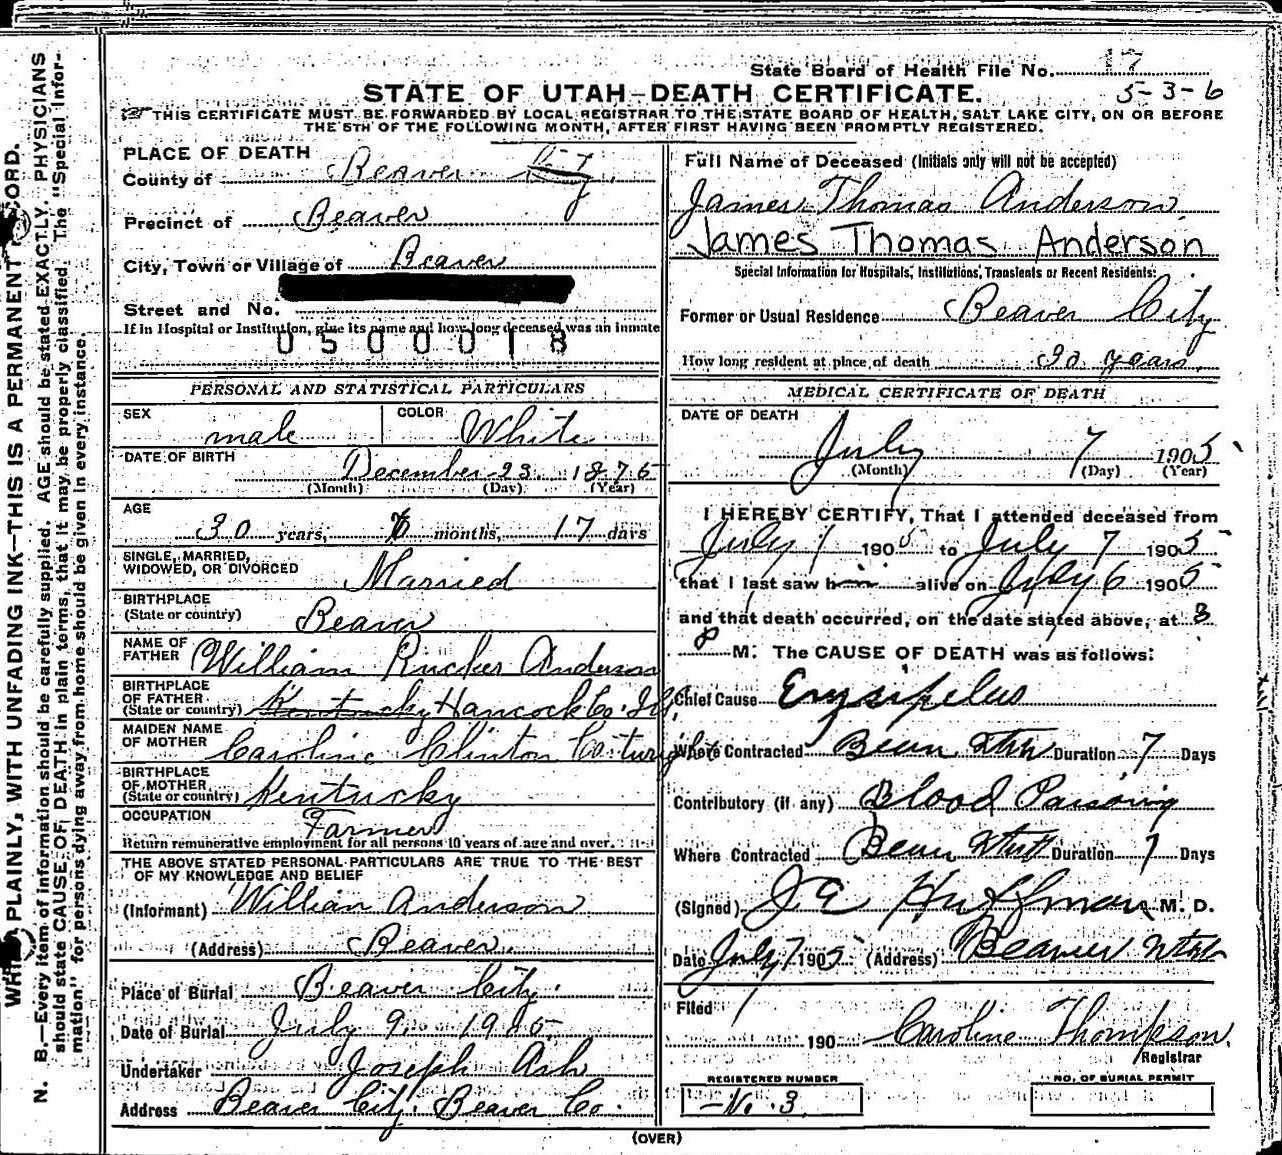 State Board of Health File No. 17
5-3-6
STATE OF UTAH—DEATH CERTIFICATE.
THIS CERTIFICATE MUST BE FORWARDED BY LOCAL REGISTRAR TO THE STATE BOARD OF HEALTH, SALT LAKE CITY, ON OR BEFORE
THE 5TH OF THE FOLLOWING MONTH, AFTER FIRST HAVING BEEN PROMPTLY REGISTERED.
PLACE OF DEATH
County of Beaver City
Precinct of Beaver
City, Town or Village of Beaver
Street and No.
If in Hospital or Institution, give its name and how long deceased was an inmate
0500018
PERSONAL AND STATISTICAL PARTICULARS
SEX male COLOR White
DATE OF BIRTH December 23 1875
(Month) (Day) (Year)
AGE
30 years, months, 17 days
SINGLE, MARRIED,
WIDOWED, OR DIVORCED Married
BIRTHPLACE
(State or country) Beaver
NAME OF
FATHER William Rucker Anderson
BIRTHPLACE
OF FATHER
(State or country) Kentucky Hancock Co. Ill.
MAIDEN NAME
OF MOTHER Caroline Clinton
BIRTHPLACE
OF MOTHER
(State or country) Kentucky
OCCUPATION Farmer
Return remunerative employment for all persons 10 years of age and over.
THE ABOVE STATED PERSONAL PARTICULARS ARE TRUE TO THE BEST
OF MY KNOWLEDGE AND BELIEF
(Informant) William Anderson
(Address) Beaver
Place of Burial Beaver City.
Date of Burial July 9 1905
Undertaker Joseph Ash
Address Beaver City. Beaver Co.
Full Name of Deceased (Initials only will not be accepted)
James Thomas Anderson
James Thomas Anderson
Special Information for Hospitals, Institutions, Transients or Recent Residents:
Former or Usual Residence Beaver City
How long resident at place of death 30 years.
MEDICAL CERTIFICATE OF DEATH
DATE OF DEATH
July 7 1905
(Month) (Day) (Year)
I HEREBY CERTIFY, That I attended deceased from
July 1 1905 to July 7 1905
that I last saw him alive on July 6 1905
and that death occurred, on the date stated above, at 3
P M. The CAUSE OF DEATH was as follows:
Chief Cause Erysipelas
Where Contracted Beaver Utah Duration 7 Days
Contributory (if any) Blood Poisoning
Where Contracted Beaver Utah Duration 7 Days
(Signed) J. E. Huffman M. D.
Date July 7 1905 (Address) Beaver Utah
Filed
190 Caroline Thompson
Registrar
REGISTERED NUMBER
No. 3.
NO. OF BURIAL PERMIT
(OVER)
WRITE PLAINLY, WITH UNFADING INK—THIS IS A PERMANENT RECORD.
N. B.—Every item of information should be carefully supplied. AGE should be stated EXACTLY. PHYSICIANS
should state CAUSE OF DEATH in plain terms, that it may be properly classified. The "Special Infor-
mation" for persons dying away from home should be given in every instance.